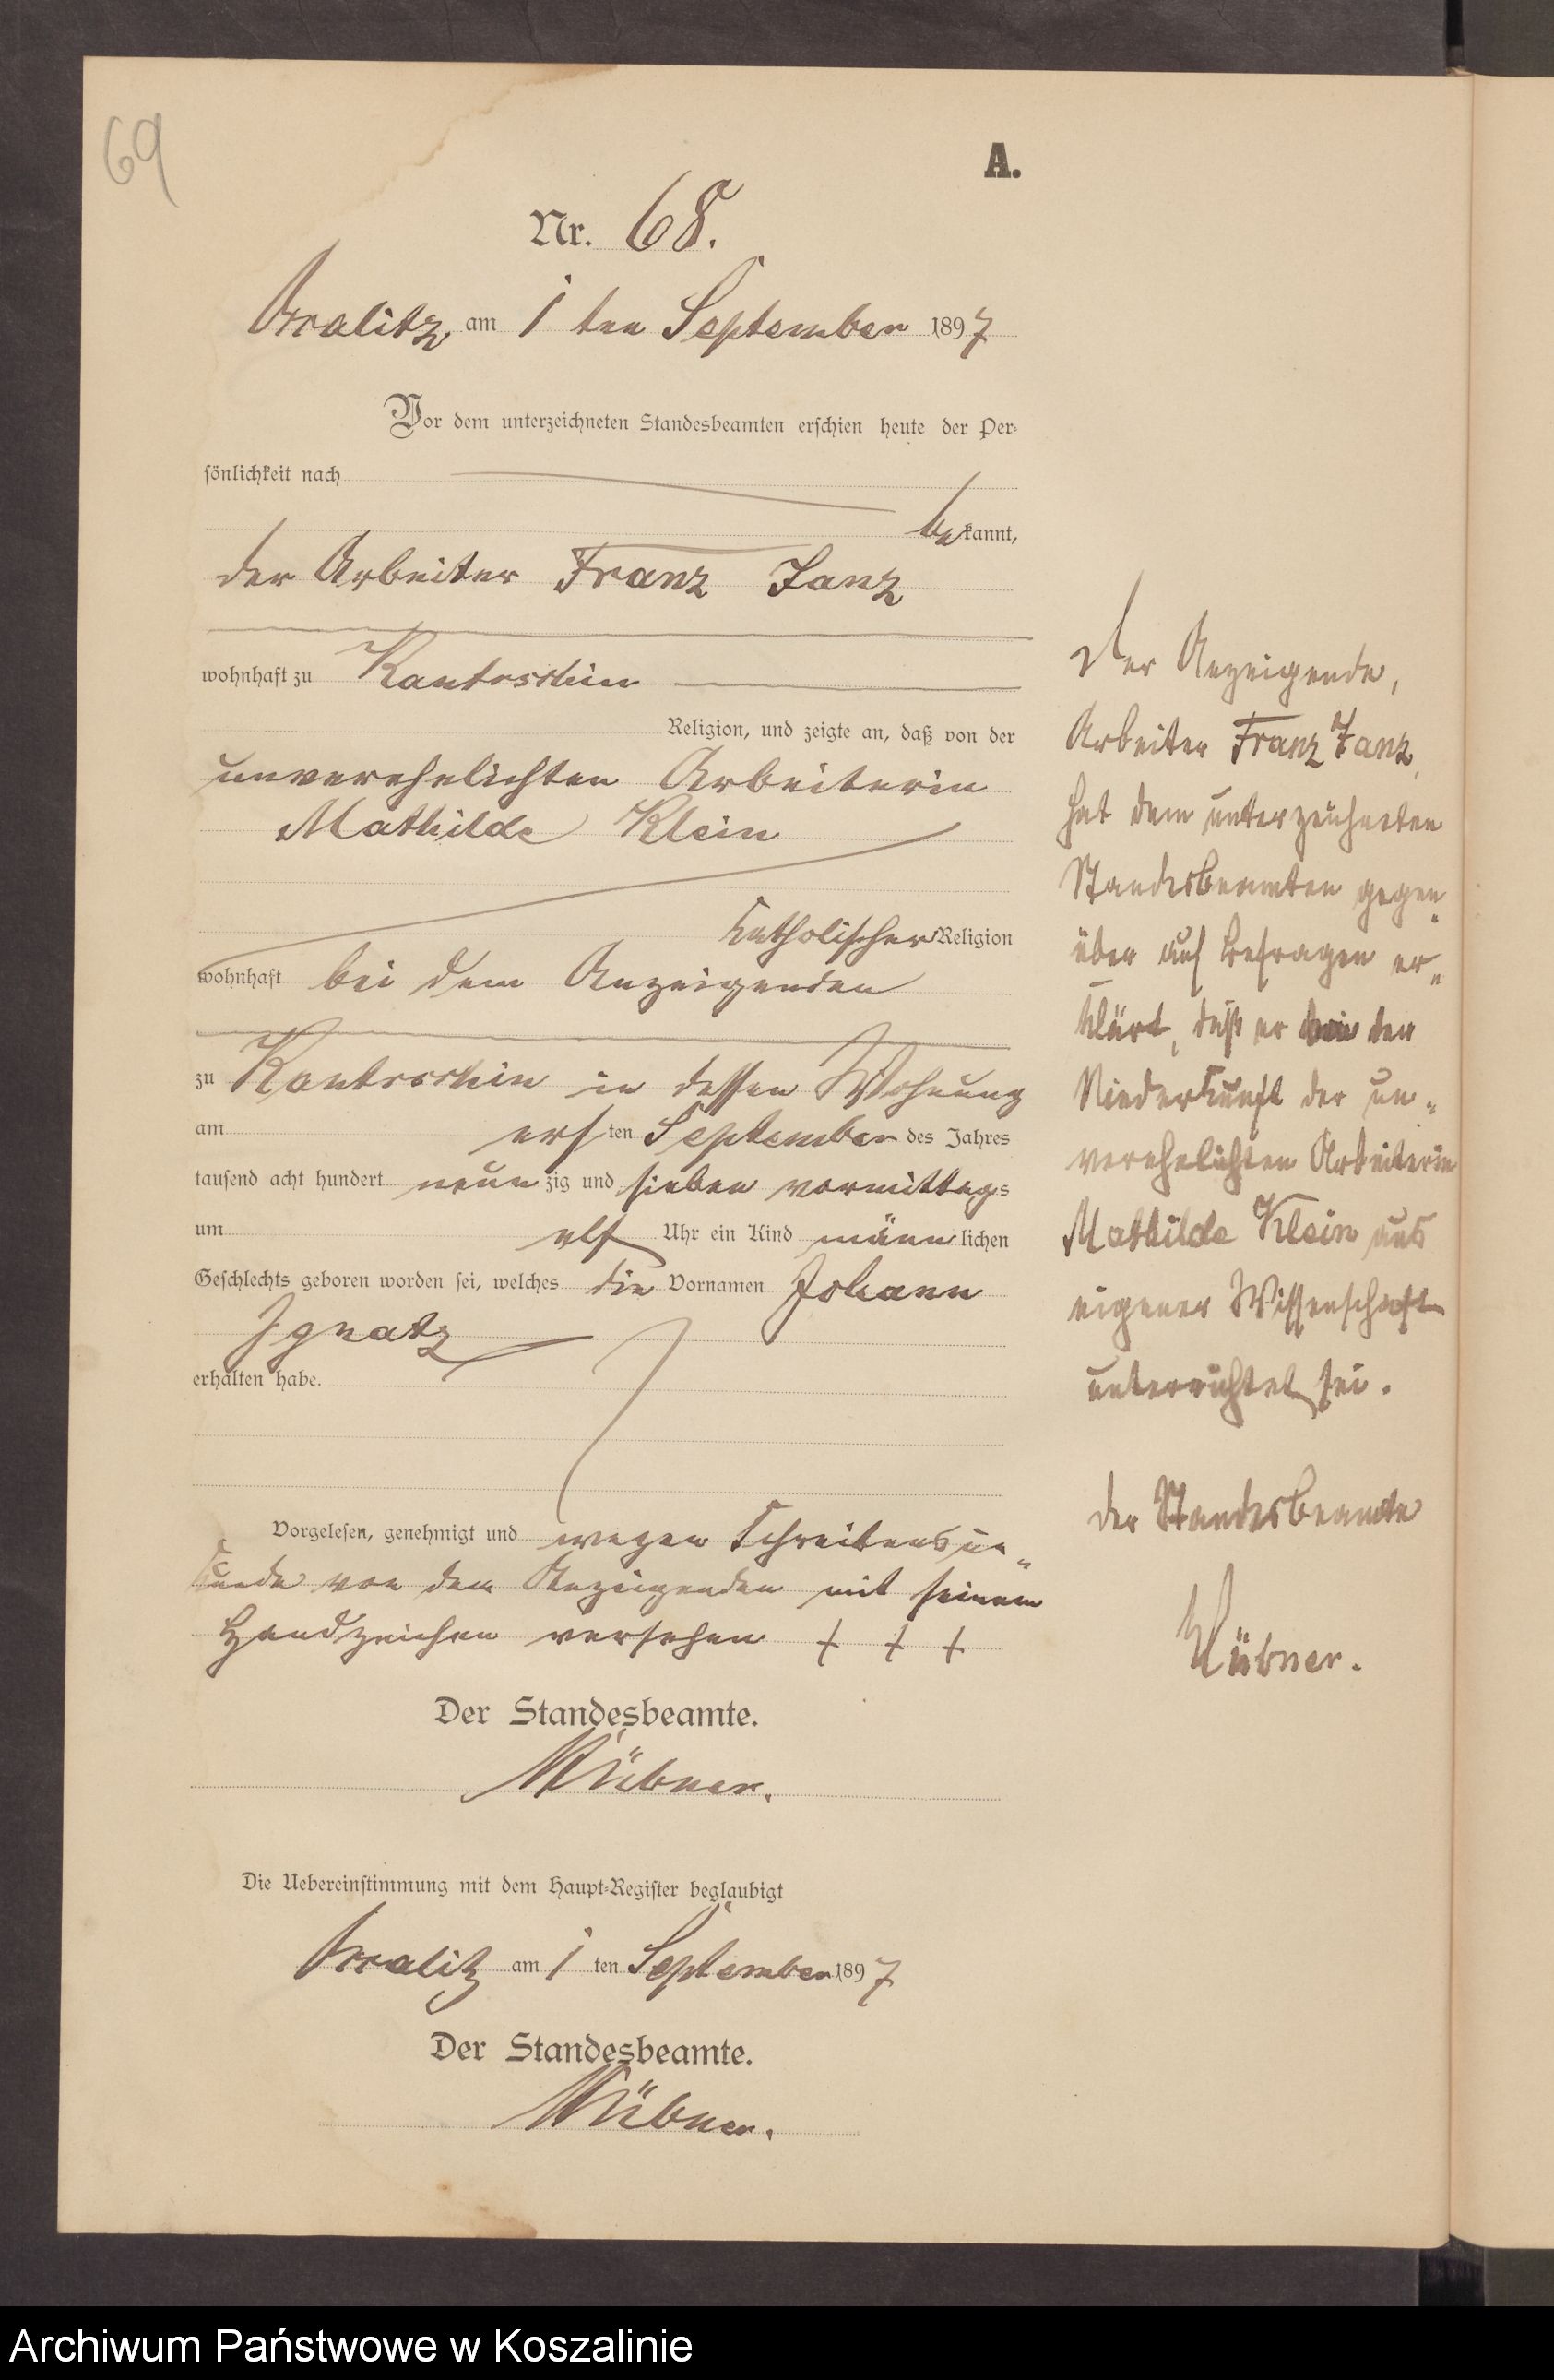 69
A.
Nr. 68.
Wralitz, am 1 ten September 1897
Vor dem unterzeichneten Standesbeamten erschien heute der Per-
sönlichkeit nach
bekannt,
der Arbeiter Franz Janz
wohnhaft zu
Religion, und zeigte an, daß von der
unverehelichten Arbeiterin
Mathilde Klein
katholischer Religion
wohnhaft bei dem Anzeigenden
zu in dessen Wohnung
am ersten September des Jahres
tausend acht hundert neunzig und sieben vormittags
um elf Uhr ein Kind männlichen
Geschlechts geboren worden sei, welches die Vornamen Johann
Ignatz
erhalten habe.
Vorgelesen, genehmigt und wegen Schreibensun-
kunde von dem Anzeigenden mit seinem
Handzeichen versehen + + +
Der Standesbeamte.
Die Uebereinstimmung mit dem Haupt-Register beglaubigt
am 1 ten September 1897
Der Standesbeamte.
Der Anzeigende,
Arbeiter Franz Janz,
hat dem unterzeichneten
Standesbeamten gegen-
über auf Befragen er-
klärt, daß er von der
Niederkunft der un-
verehelichten Arbeiterin
Mathilde Klein aus
eigener Wissenschaft
unterrichtet sei.
Der Standesbeamte
Archiwum Państwowe w Koszalinie